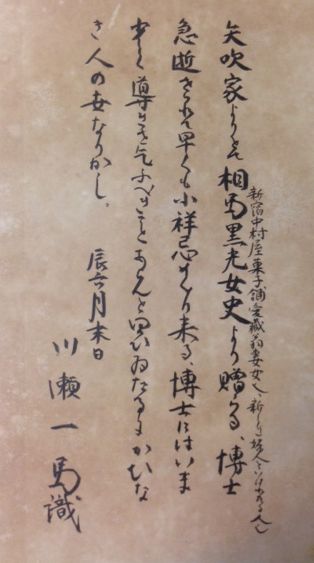 矢吹家よりとて相馬黒光女史より贈らる、博士
新宿中村屋菓子舗愛蔵翁妻女也、新しき婦人といはれたる人也
急逝されて早くも小祥忌 り来る、博士にはいま
少しく導きを乞ふべきことあらんと思ひゐたるにかひな
き人の世なりかし。
辰六月末日
川瀬一馬識